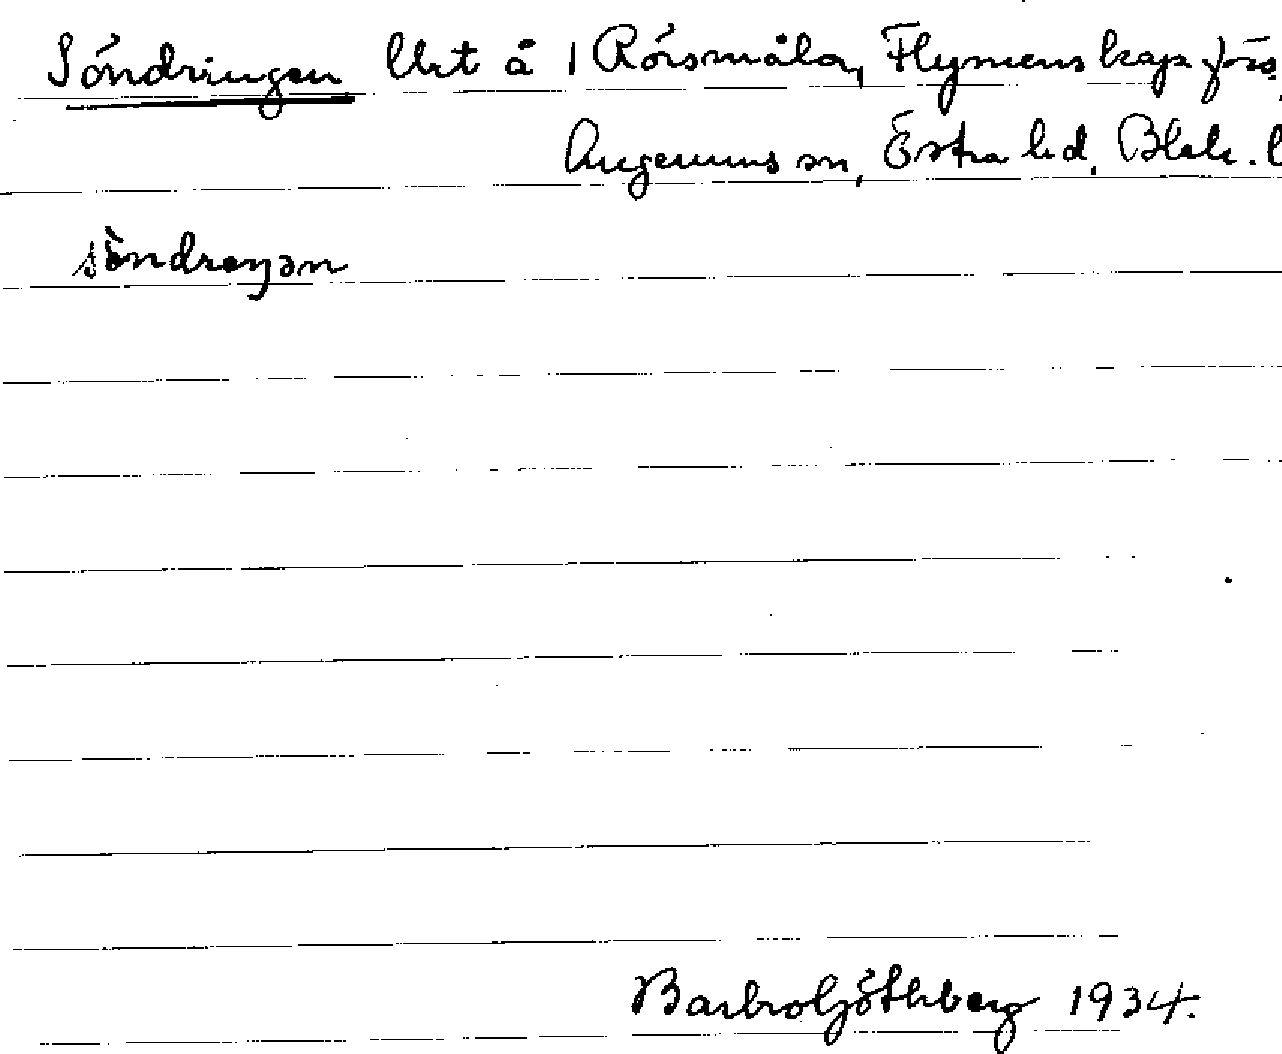 Söndringen Urt å 1 Rörsmåla, Flymens kap förs,
Augerums sn, Östra hd, Blek. l
söndreŋən
Barbro Göthberg 1934.